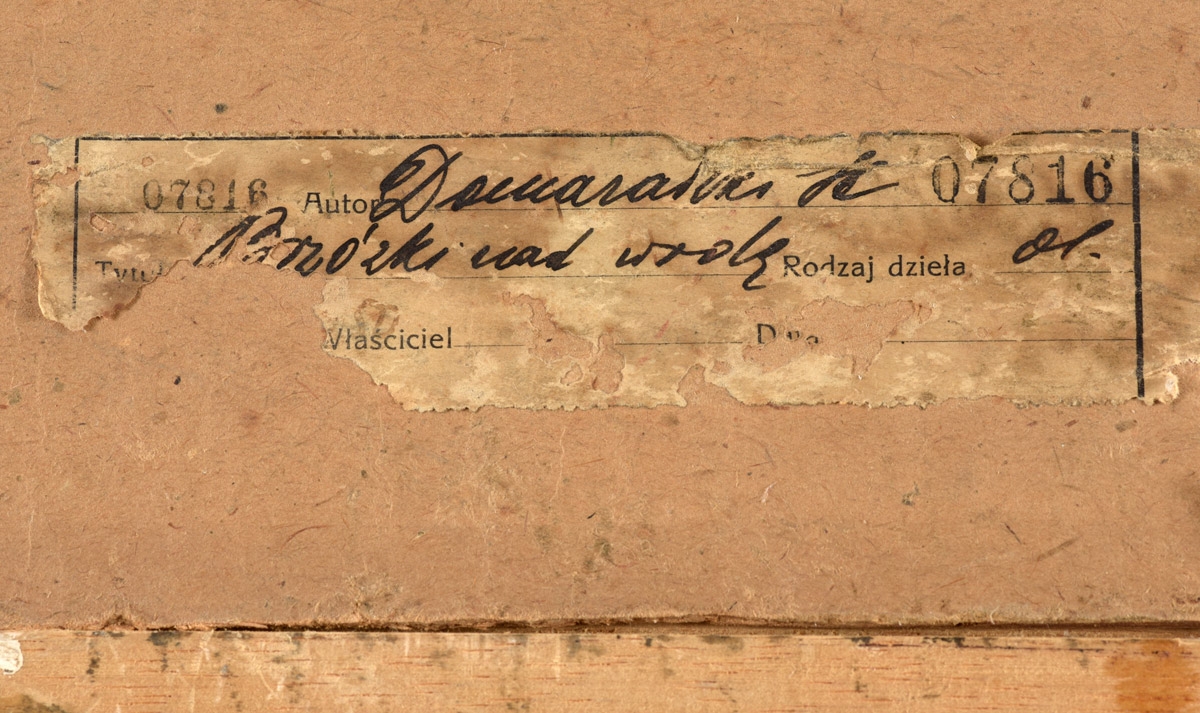 07816 Autor Domaradzki St 07816
Tytuł Brzózki nad wodą Rodzaj dzieła ol.
Właściciel